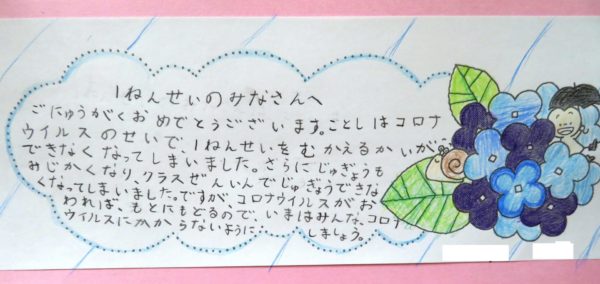 1ねんせいのみなさんへ
ごにゅうがくおめでとうございます。ことしはコロナ
ウイルスのせいで、1ねんせいをむかえるかいが
できなくなってしまいました。さらにじゅぎょうも
みじかくなり、クラスぜんいんでじゅぎょうできな
くなってしまいました。ですが、コロナウイルスがお
われば、もとにもどるので、いまはみんな、コロナ
ウイルスにかからないように
しましょう。